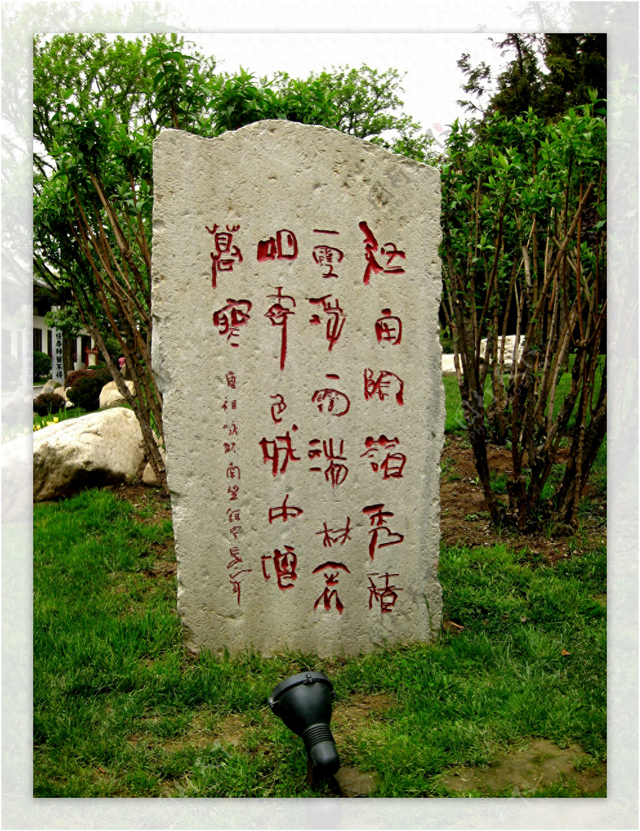 終南陰嶺秀積
雪浮雲端林表
明霽色城中增
暮寒
唐祖咏終南望餘雪